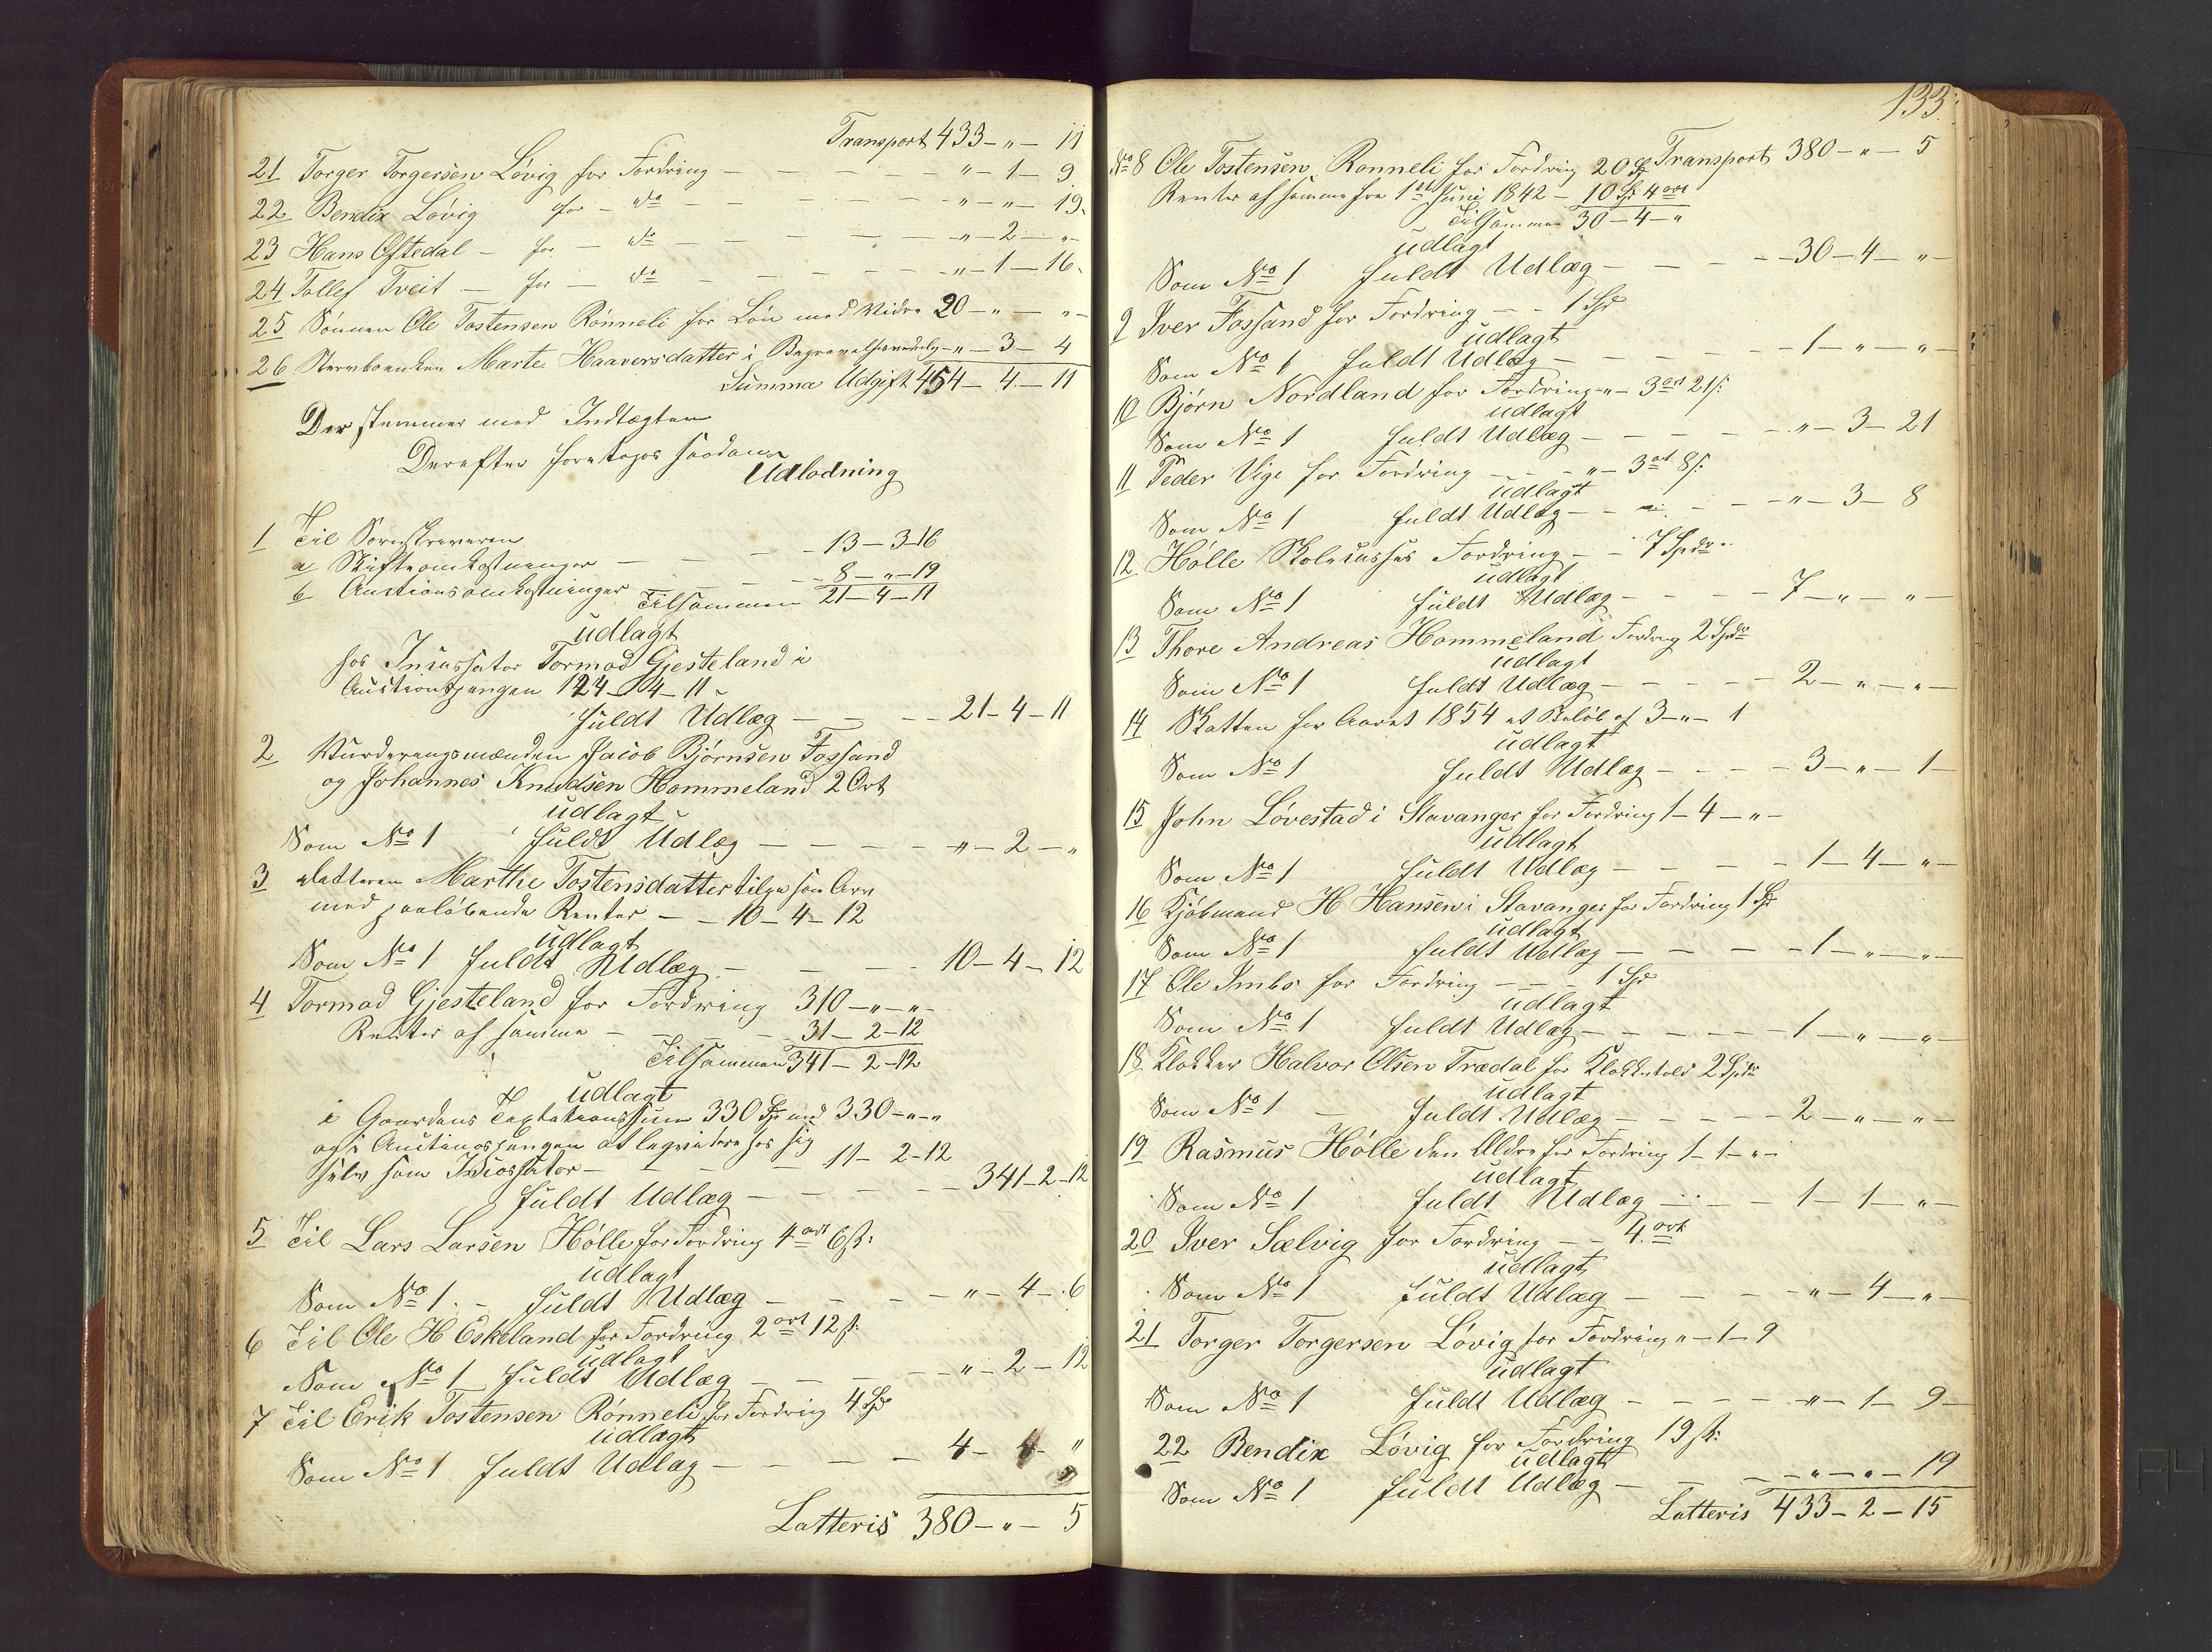 Transport 433 - „ - 11
21 Torger Torgersen Løvig for Fordring - - - - - „ - 1 - 9
22 Bendix Løvig for - do - - - - - „ - „ - 19
23 Hans Oftedal - for - do - - - - - „ - 2 - „ -
24 Tollef Tveit - for - do - - - - - „ - 1 - 16
25 Sønnen Ole Tostensen Rønneli for Løn med Videre 20 - „ - „ -
26 Stervboenken Marte Haaversdatter i Begravelses „ - 3 - 4
Summa Udgift 454 - 4 - 11
Der stemmer med Indtægten
Derefter foretages saadan
Udlodning
1 Til Sorenskriveren
a Skifteomkostninger - - - 13 - 3 - 16
b Auctionsomkostninger - - - 8 - „ - 19
Tilsammen 21 - 4 - 11
udlagt
hos Incassator Tormod Gjesteland i
Auctionspengen 124 - 4 - 11
fuldt Udlæg - - - 21 - 4 - 11
2 Vurderingsmænden Jacob Bjørnsen Fossand
og Johannes Knudsen Hommeland 2 Ort
udlagt
Som No 1 fuldt Udlæg - - - - „ - 2 - „
3 Datteren Marthe Tostensdatter tilgo son Arv
med paaløbende Renter - - 10 - 4 - 12
udlagt
Som No 1 fuldt Udlæg - - - - 10 - 4 - 12
4 Tormod Gjesteland for Fordring 310 - „ - „ -
Renter af samme - - - 31 - 2 - 12
Tilsammen 341 - 2 - 12
udlagt
i Gaardens Taxtationssum 330 Spd med 330 - „ - „
og i Auctionspengen at leqvidere hos sig
selv som Incassator - - - 11 - 2 - 12
fuldt Udlæg - - - - 341 - 2 - 12
5 Til Lars Larsen Hølle for Fordring 4 ort 6 s:
udlagt
Som No 1 - fuldt Udlæg - - - - „ - 4 - 6
6 Til Ole H Eskeland for Fordring 2 ort 12 s:
udlagt
Som No 1 fuldt Udlæg - - - - „ - 2 - 12
7 Til Erik Tostensen Rønneli for Fordring 4 Spd
udlagt
Som No 1 fuldt Udlæg - - - - 4 - „
Latteris 380 - „ - 5
133.
Transport 380 - „ - 5
No 8 Ole Tostensen Rønneli for Fordring 20 Spd
Renter af samme fra 1ste Juni 1842 - 10 Spd 4 ort
Tilsammen 30 - 4 - „
udlagt
Som No 1 fuldt Udlæg - - - - 30 - 4 - „ -
9 Iver Fossand for Fordring - - 1 Spd
udlagt
Som No 1 fuldt Udlæg - - - - 1 - „ - „ -
10 Bjørn Nordland for Fordring - „ - 3 ort 21 s:
udlagt
Som No 1 fuldt Udlæg - - - - „ - 3 - 21
11 Peder Vige for Fordring - - - „ - 3 ort 8 s:
udlagt
Som No 1 fuldt Udlæg - - - - „ - 3 - 8
12 Hølle Skolecasses Fordring - - 7 Spdr
udlagt
Som No 1 fuldt Udlæg - - - - 7 - „ - „ -
13 Thore Andreas Hommeland Fordring 2 Spdr
udlagt
Som No 1 fuldt Udlæg - - - - 2 - „ - „ -
14 Skatten for Aaret 1854 et Beløb af 3 - „ - 1
udlagt
Som No 1 fuldt Udlæg - - - - 3 - „ - 1 -
15 John Løvestad i Stavanger for Fordring 1 - 4 - „ -
udlagt
Som No 1 fuldt Udlæg - - - - 1 - 4 - „ -
16 Kjøbmand H Hansen i Stavanger for Fordring 1 Spd
udlagt
Som No 1 fuldt Udlæg - - - - 1 - „ - „ -
17 Ole Imbs for Fordring - - - 1 Spd
udlagt
Som No 1 fuldt Udlæg - - - - 1 - „ - „ -
18 Klokker Halvor Olsen Trædal for Klokketold 2 Spdr
udlagt
Som No 1 - fuldt Udlæg - - - - 2 - „ - „ -
19 Rasmus Hølle den Ældre for Fordring 1 - 1 - „ -
udlagt
Som No 1 fuldt Udlæg - - - 1 - 1 - „ -
20 Iver Sælvig for Fordring - - 4 ort
udlagt
Som No 1 fuldt Udlæg - - - - „ - 4 - „ -
21 Torger Torgersen Løvig for Fordring „ - 1 - 9
udlagt
Som No 1 fuldt Udlæg - - - - „ - 1 - 9 -
22 Bendix Løvig for Fordring 19 s:
udlagt
Som No 1 fuldt Udlæg - - - - „ - „ - 19
Latteris 433 - 2 - 15